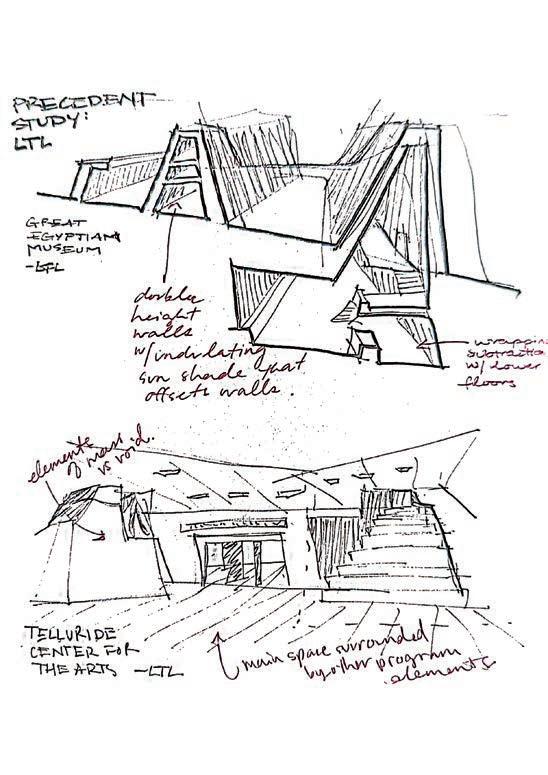 PRECIDENT
STUDY:
LTL
GREAT
EGYPTIAN
MUSEUM
-LTL
double
height
walls
w/undulating
sun shade that
offsets walls.
wrapping
subtraction
w/ lower
floors
elements
of mass
vs void.
TELLURIDE
CENTER FOR
THE ARTS -LTL
main space surrounded
by other program
elements